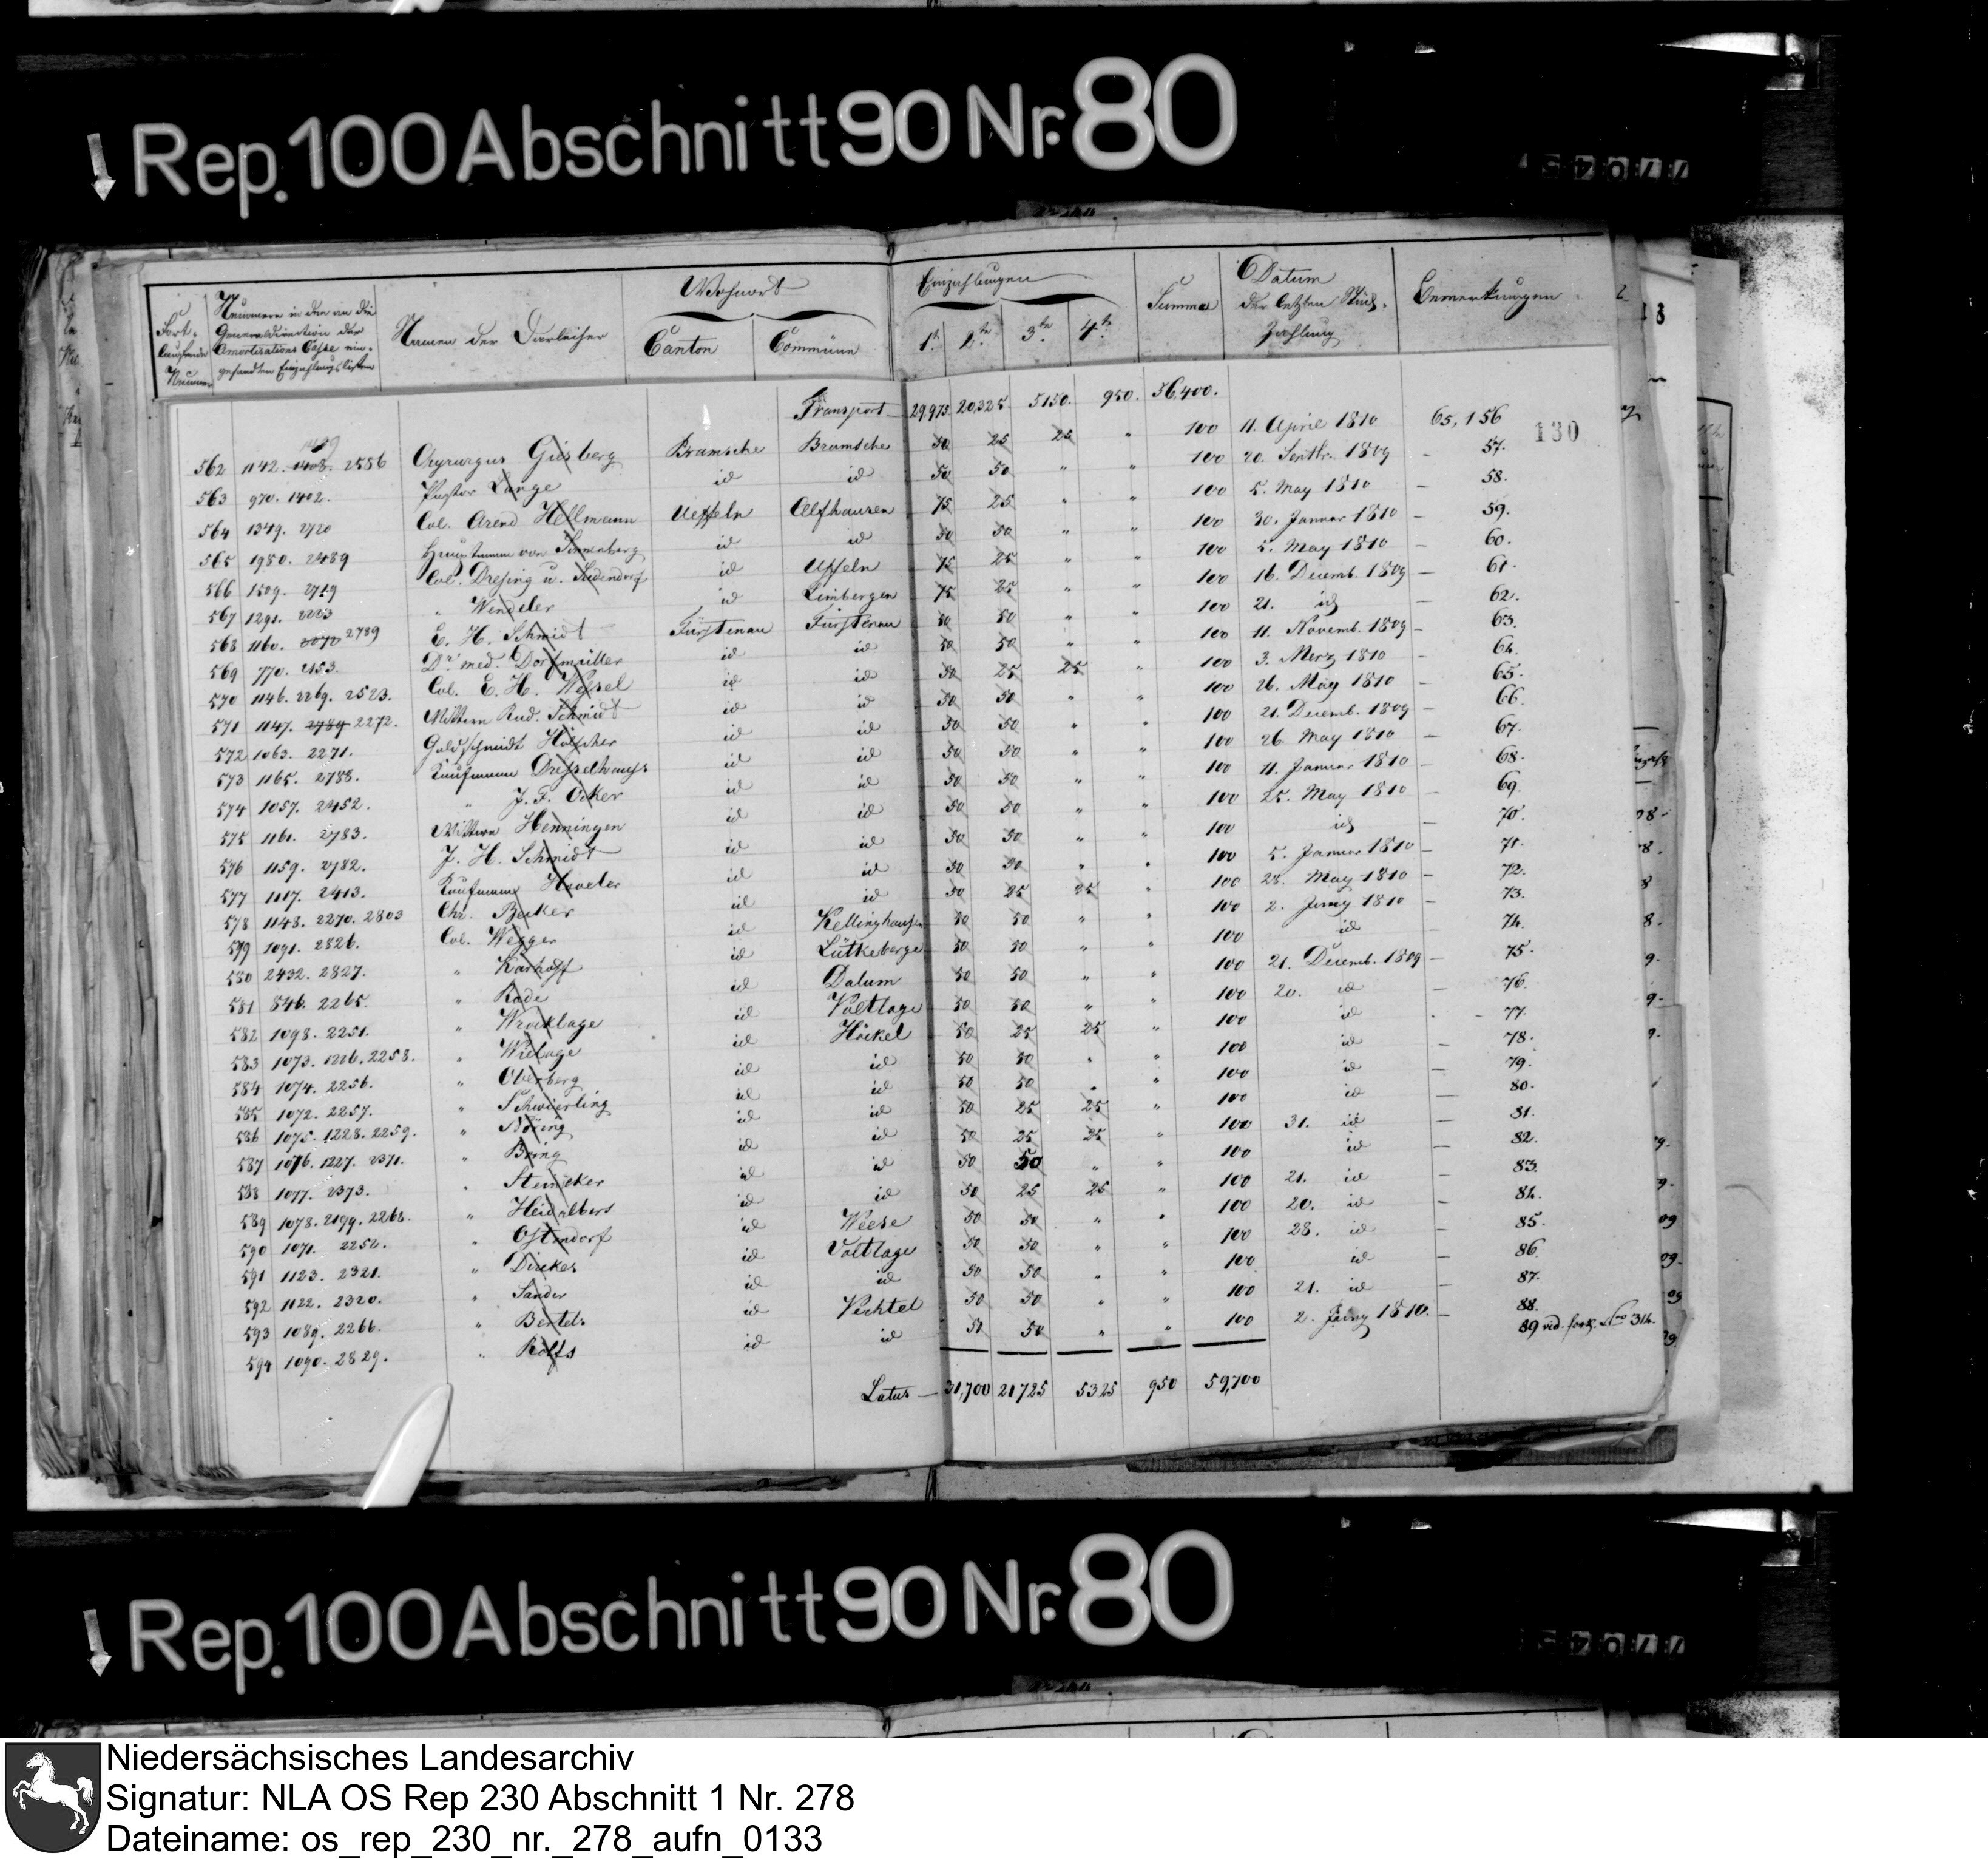 Rep. 100 Abschnitt 90 Nr. 80
Fort- laufende Nummer | Nummern in den an die Generaldirection der Amortisations Casse ein- gesandten Einzahlungslisten | Namen der Darleiher | Wohnort Canton | Commüne | Einzahlungen 1te | 2te | 3te | 4te | Summa | Datum der letzten Zahlung | Bemerkungen
130
Transport 29,975 20,325. 5150. 950. 56,400.
562 1142. 1408. 2586 Chyrurgus Gisberg Bramsche Bramsche 50 25 25 " 100 11. April 1810 65,156
563 970. 1402. Pastor Lange id id 50 50 " " 100 20. Septbr. 1809 - 57.
564 1349. 2720 Col. Arend Hellmann Ueffeln Alfhausen 75 25 " " 100 5. May 1810 - 58.
565 1980. 2489 Hauptmann von id id 50 50 " " 100 30. Januar 1810 - 59.
566 1509. 2719 Col. Dresing u. Sudendorf id Uffeln 75 25 " " 100 5. May 1810 - 60.
567 1291. 2223 " Wendeler id Limbergen 75 25 " " 100 16. Decemb. 1809 - 61.
568 1160. 2272 2789 E. H. Schmidt Fürstenau Fürstenau 50 50 " " 100 21. id - 62.
569 770. 2153. Dr. med. Dorfmüller id id 50 50 " " 100 11. Novemb. 1809 - 63.
570 1146. 2269. 2523. Col. E. H. Wessel id id 50 25 25 " 100 3. Merz 1810 - 64.
571 1147. 2784 2272. Wittwe Rud. Schmidt id id 50 50 " " 100 26. May 1810 - 65.
572 1063. 2271. Goldschmidt Hölscher id id 50 50 " " 100 21. Decemb. 1809 - 66.
573 1165. 2788. Kaufmann Dresselhauss id id 50 50 " " 100 26. May 1810 - 67.
574 1057. 2452. " J. F. Ocker id id 50 50 " " 100 11. Januar 1810 - 68.
575 1161. 2783. Wittwe Henningen id id 50 50 " " 100 25. May 1810 - 69.
576 1159. 2782. J. H. Schmidt id id 50 50 " " 100 id - 70.
577 1117. 2413. Kaufmann id id 50 50 " " 100 5. Januar 1810 - 71.
578 1148. 2270. 2803 Chr. Becker id id 50 25 25 " 100 28. May 1810 - 72.
579 1091. 2826. Col. Wegger id Kellinghausen 50 50 " " 100 2. Juny 1810 - 73.
580 2432. 2827. " Karhoff id Lütkeberge 50 50 " " 100 id - 74.
581 846. 2265. " Rade id Dalum 50 50 " " 100 21. Decemb. 1809 - 75.
582 1098. 2251. " Wrocklage id Voltlage 50 50 " " 100 20. id - 76.
583 1073. 1226. 2258. " Wielage id Höckel 50 25 25 " 100 id - 77.
584 1074. 2256. " Oberberg id id 50 50 " " 100 id - 78.
585 1072. 2257. " Schwierling id id 50 50 " " 100 id - 79.
586 1075. 1228. 2259. " Nöring id id 50 25 25 " 100 id - 80.
587 1076. 1227. 2371. " Bring id id 50 25 25 " 100 31. id - 81.
588 1077. 2373. " Steinecker id id 50 50 " " 100 id - 82.
589 1078. 2199. 2264. " Heidelbers id id 50 25 25 " 100 21. id - 83.
590 1071. 2252. " Ostendorf id Weese 50 50 " " 100 20. id - 84.
591 1123. 2321. " Dirckes id Voltlage 50 50 " " 100 28. id - 85.
592 1122. 2320. " Sander id id 50 50 " " 100 id - 86.
593 1089. 2266. " Bertels id Vechtel 50 50 " " 100 21. id - 87.
594 1090. 2829. " Rolfs id id 50 50 " " 100 2. Juny 1810. - 88.
89 vid. fortl. Nro 314.
Latus - 31,700 21725 5325 950 59,700
Rep. 100 Abschnitt 90 Nr. 80
Niedersächsisches Landesarchiv
Signatur: NLA OS Rep 230 Abschnitt 1 Nr. 278
Dateiname: os_rep_230_nr._278_aufn_0133